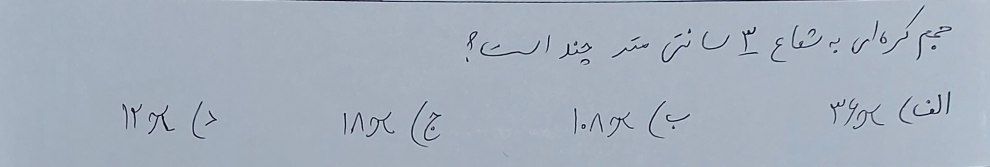 حجم کره‌ای به شعاع ۳ سانتی متر چند است؟
الف) ۳۶π ب) ۱۰۸π ج) ۱۸π د) ۱۲π